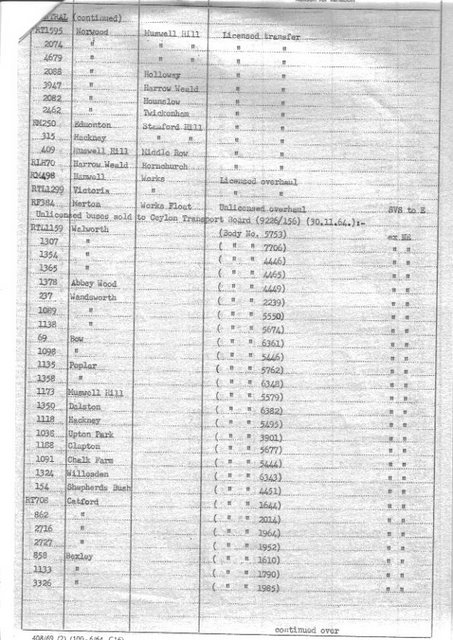 CENTRAL (continued)
RT1595 Norwood Muswell Hill Licensed transfer
2074 " " " " "
4679 " " " " "
2088 " Holloway " "
3947 " Harrow Weald " "
2082 " Hounslow " "
2462 " Twickenham " "
RM250 Edmonton Stamford Hill " "
315 Hackney " " " "
409 Muswell Hill Middle Row " "
RLH70 Harrow Weald Hornchurch " "
RM498 Hanwell Works Licensed overhaul
RTL1299 Victoria " " "
RF384 Merton Works Float Unlicensed overhaul SVS to E
Unlicensed buses sold to Ceylon Transport Board (9226/156) (30.11.64.):-
RTL1159 Walworth (Body No. 5753) ex NE
1307 " ( " " 7706) " "
1354 " ( " " 4446) " "
1365 " ( " " 4465) " "
1378 Abbey Wood ( " " 4449) " "
237 Wandsworth ( " " 2239) " "
1089 " ( " " 5550) " "
1138 " ( " " 5674) " "
69 Bow ( " " 6361) " "
1098 " ( " " 5446) " "
1135 Poplar ( " " 5762) " "
1358 " ( " " 6348) " "
1173 Muswell Hill ( " " 5579) " "
1350 Dalston ( " " 6382) " "
1118 Hackney ( " " 5495) " "
1038 Upton Park ( " " 3901) " "
1188 Clapton ( " " 5677) " "
1091 Chalk Farm ( " " 5444) " "
1324 Willesden ( " " 6343) " "
154 Shepherds Bush ( " " 4451) " "
RT708 Catford ( " " 1644) " "
862 " ( " " 2014) " "
2716 " ( " " 1964) " "
2727 " ( " " 1952) " "
858 Bexley ( " " 1610) " "
1133 " ( " " 1790) " "
3326 " ( " " 1985) " "
continued over